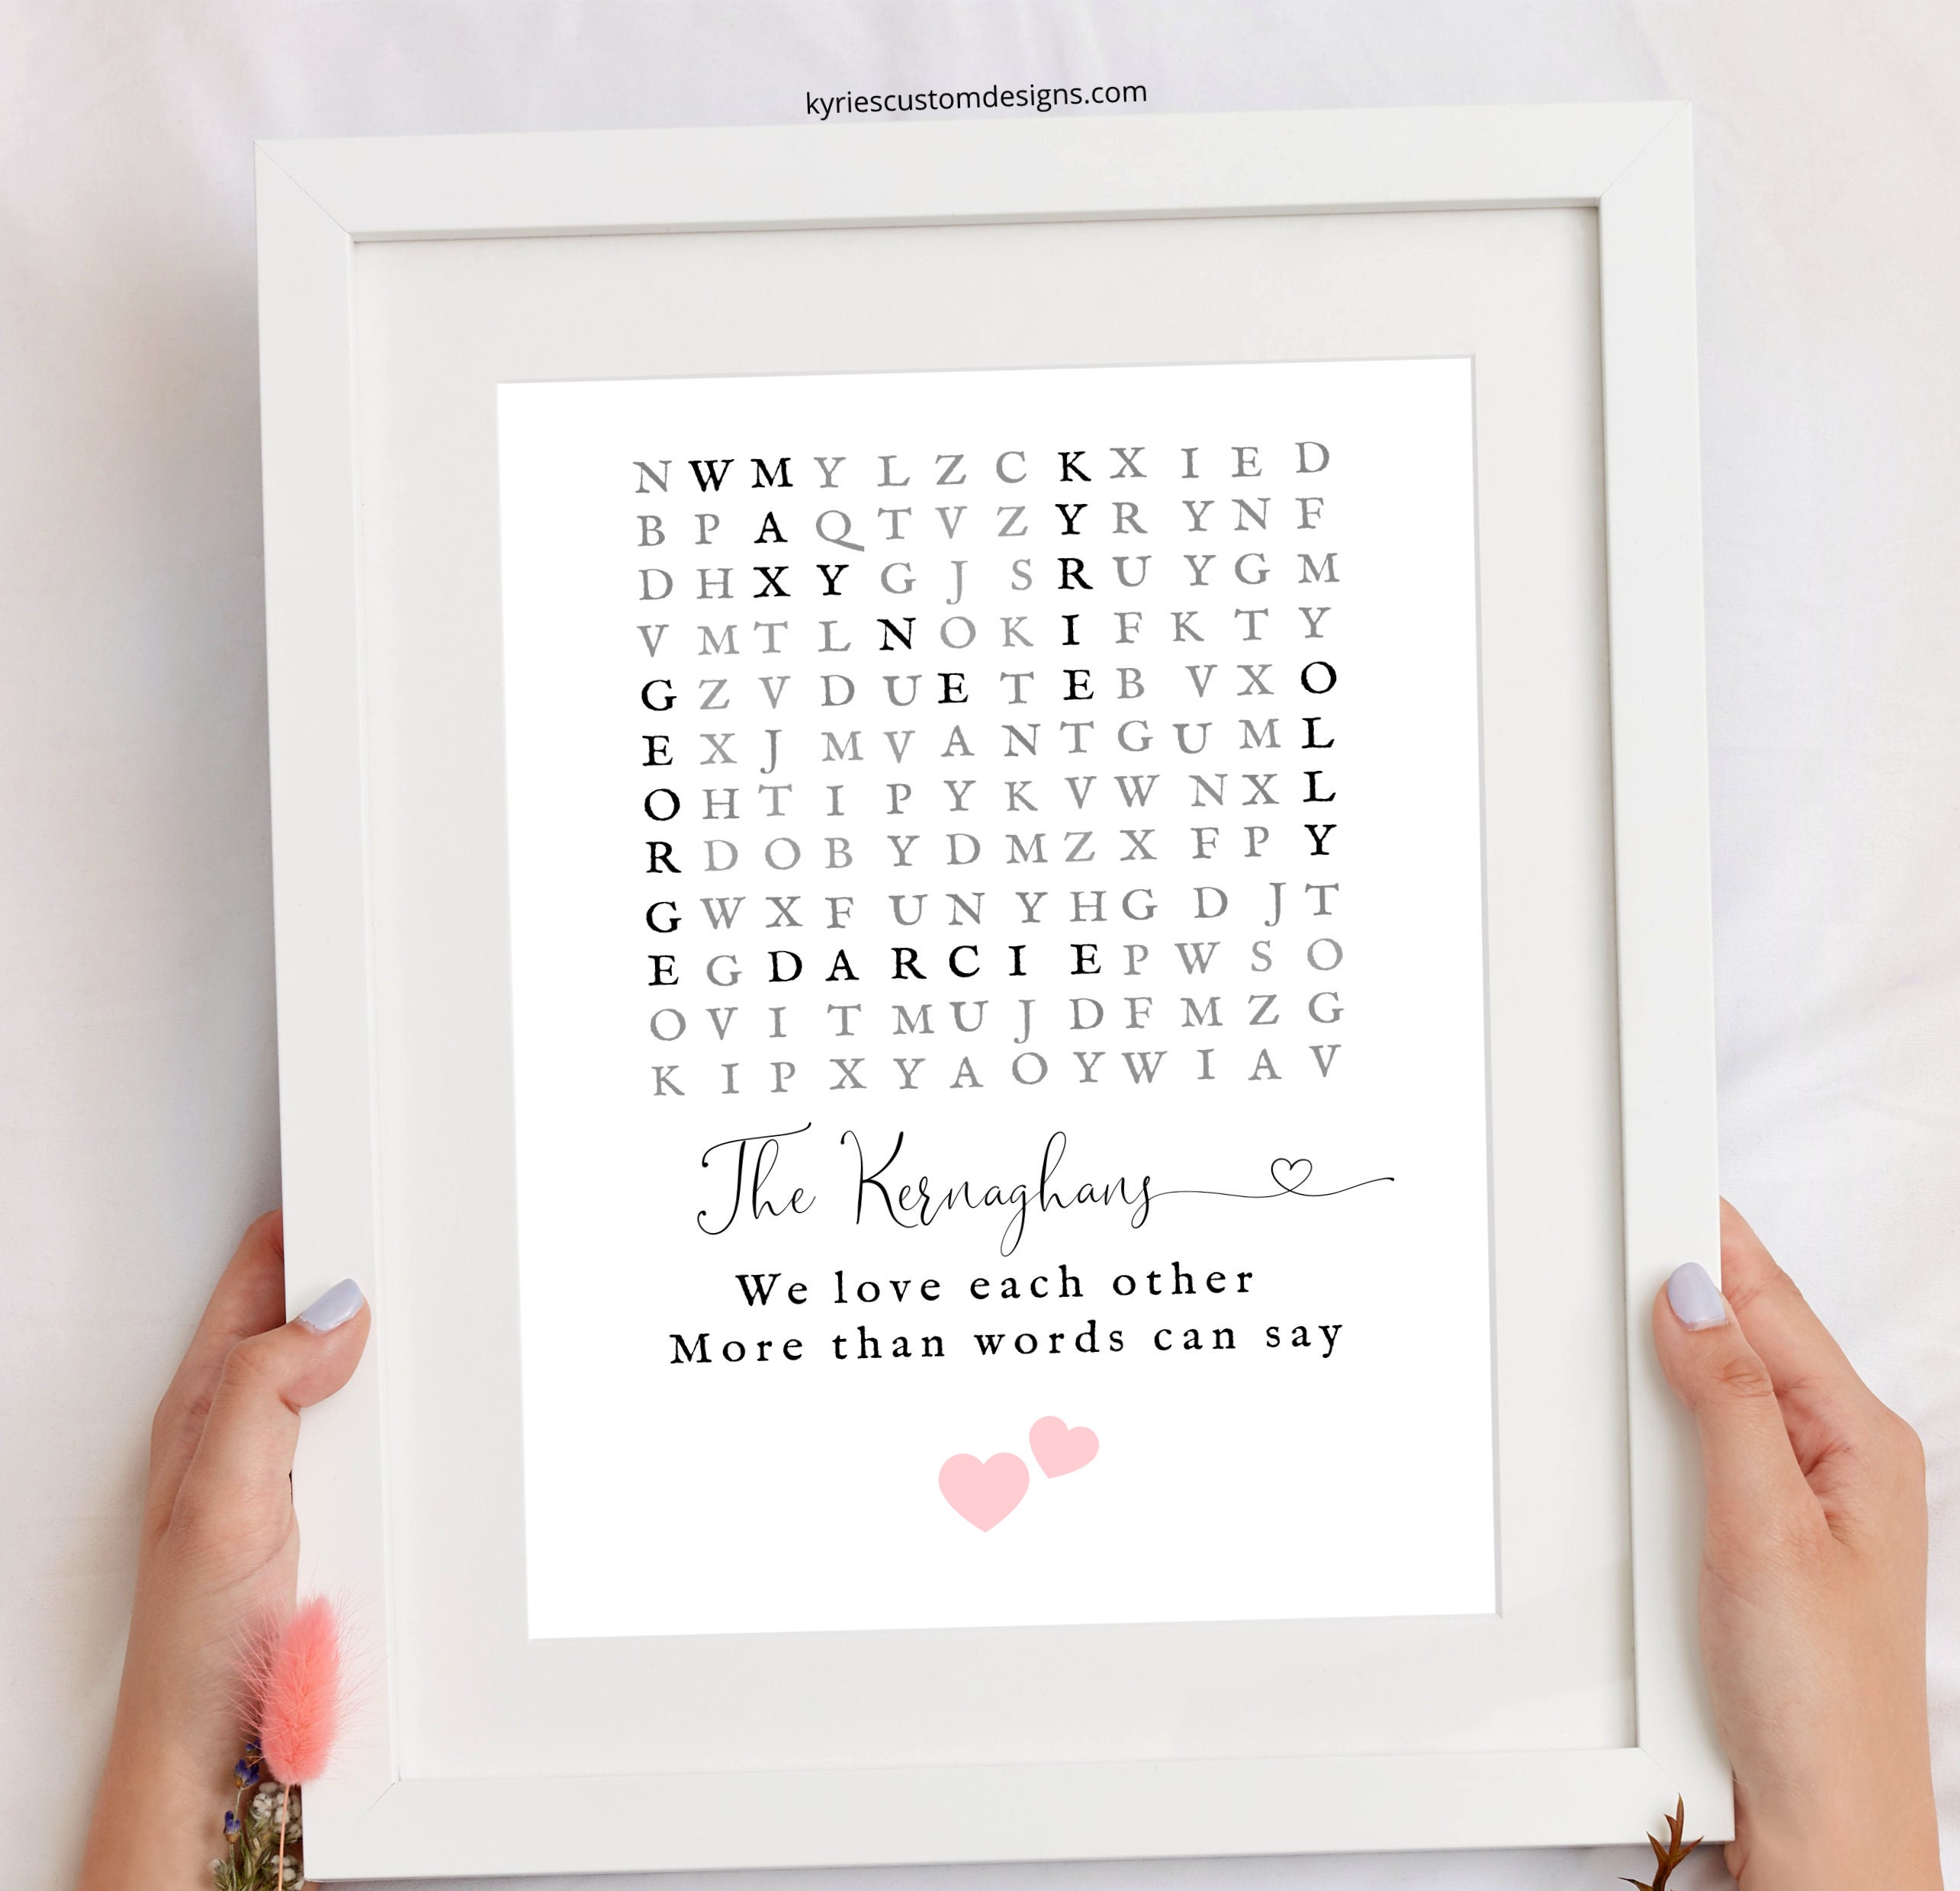 kyriescustomdesigns.com
N W M Y L Z C K X I E D
B P A Q T V Z Y R Y N F
D H X Y G J S R U Y G M
V M T L N O K I F K T Y
G Z V D U E T E B V X O
E X J M V A N T G U M L
O H T I P Y K V W N X L
R D O B Y D M Z X F P Y
G W X F U N Y H G D J T
E G D A R C I E P W S O
O V I T M U J D F M Z G
K I P X Y A O Y W I A V
The Kernaghans
We love each other
More than words can say